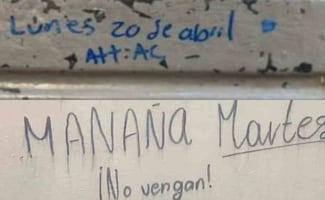 Lunes 20 de abril
Att: AC
MANAÑA Martes
¡No vengan!